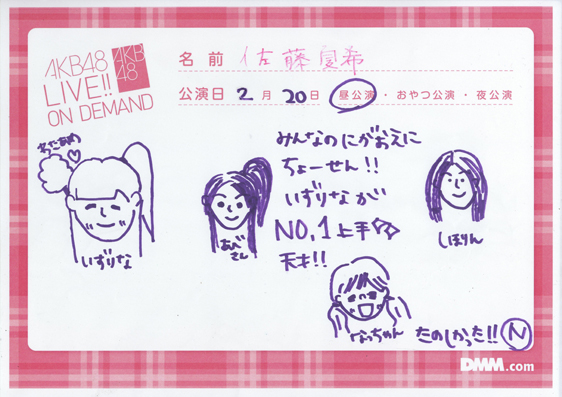 AKB48
LIVE!!
ON DEMAND
AKB
48
名前 佐藤夏希
公演日 2月20日 昼公演・おやつ公演・夜公演
みんなのにがおえに
ちょーせん!!
いずりなが
NO,1上手
天才!!
いずりな
あべさん
しほりん
なっちゃん
たのしかった!! N
DMM.com